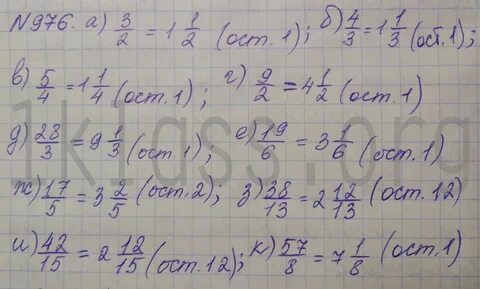 №976. а) 3/2 = 1 1/2 (ост. 1); б) 4/3 = 1 1/3 (ост. 1);
в) 5/4 = 1 1/4 (ост. 1); г) 9/2 = 4 1/2 (ост. 1)
д) 28/3 = 9 1/3 (ост. 1); е) 19/6 = 3 1/6 (ост. 1)
ж) 17/5 = 3 2/5 (ост. 2); з) 38/13 = 2 12/13 (ост. 12)
и) 42/15 = 2 12/15 (ост. 12); к) 57/8 = 7 1/8 (ост. 1)
1klass.org